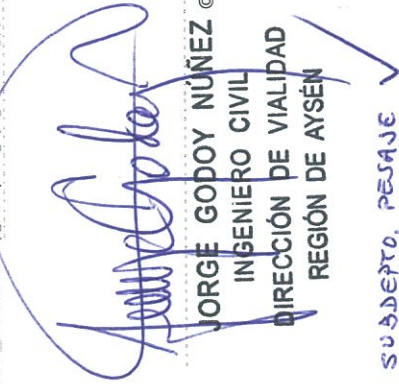 JORGE GODOY NÚÑEZ
INGENIERO CIVIL
DIRECCIÓN DE VIALIDAD
REGIÓN DE AYSÉN
SUBDEPTO. PESAJE